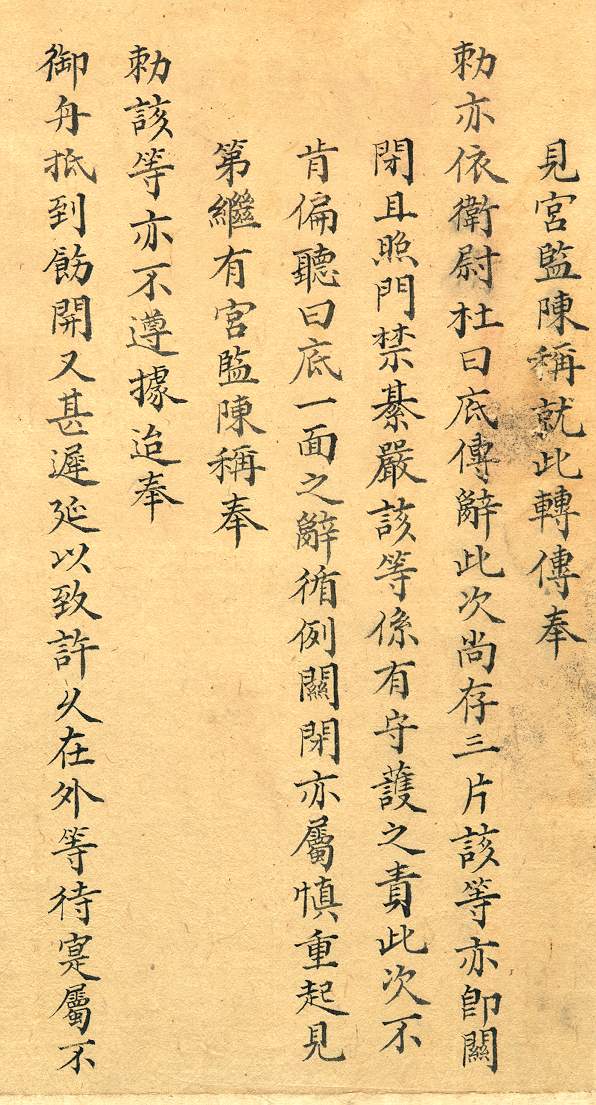 見宮監陳稱就此轉傳奉
勅亦依衛尉杜曰底傳辭此次尚存三片該等亦即關
閉且照門禁綦嚴該等係有守護之責此次不
肯偏聽曰底一面之辭循例關閉亦屬慎重起見
第繼有宮監陳稱奉
勅該等亦不遵據迨奉
御舟抵到飭開又甚遲延以致許久在外等待寔屬不